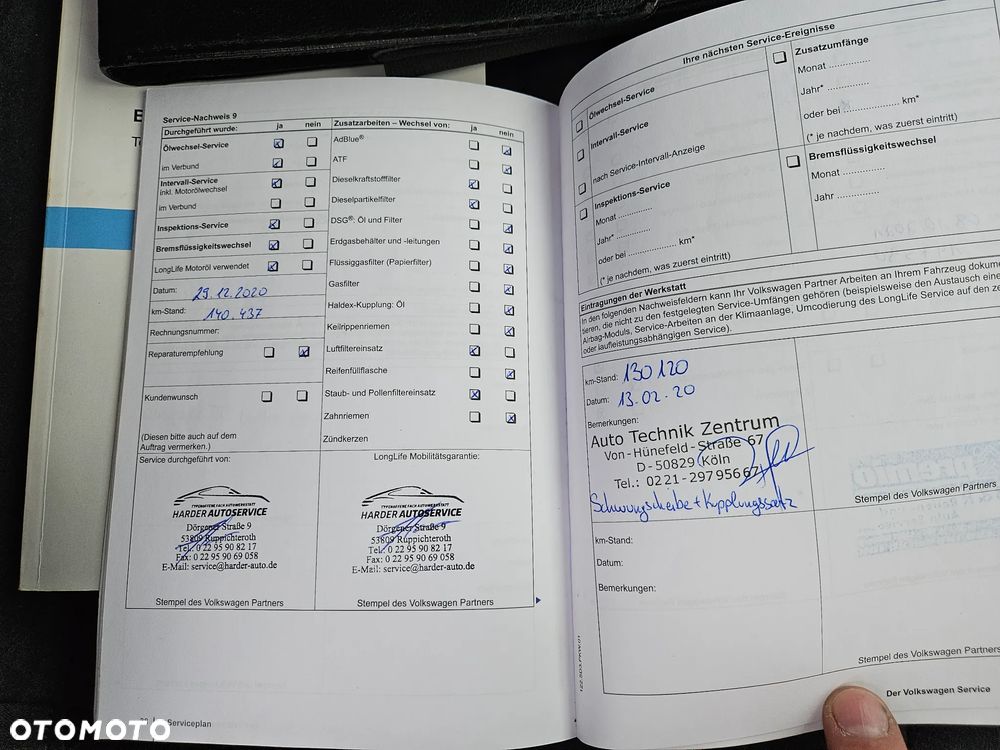 Service-Nachweis 9
Durchgeführt wurde: ja nein
Ölwechsel-Service
im Verbund
Intervall-Service
inkl. Motorölwechsel
im Verbund
Inspektions-Service
Bremsflüssigkeitswechsel
LongLife Motoröl verwendet
Datum: 29.12.2020
km-Stand: 140.437
Rechnungsnummer:
Reparaturempfehlung
Kundenwunsch
(Diesen bitte auch auf dem
Auftrag vermerken.)
Service durchgeführt von:
TYPENOFFENE FACH AUTOWERKSTATT
HARDER AUTOSERVICE
Dörgener Straße 9
53809 Ruppichteroth
Tel.: 0 22 95 90 82 17
Fax: 0 22 95 90 69 058
E-Mail: service@harder-auto.de
Stempel des Volkswagen Partners
Zusatzarbeiten – Wechsel von: ja nein
AdBlue®
ATF
Dieselkraftstofffilter
Dieselpartikelfilter
DSG®: Öl und Filter
Erdgasbehälter und -leitungen
Flüssiggasfilter (Papierfilter)
Gasfilter
Haldex-Kupplung: Öl
Keilrippenriemen
Luftfiltereinsatz
Reifenfüllflasche
Staub- und Pollenfiltereinsatz
Zahnriemen
Zündkerzen
LongLife Mobilitätsgarantie:
TYPENOFFENE FACH AUTOWERKSTATT
HARDER AUTOSERVICE
Dörgener Straße 9
53809 Ruppichteroth
Tel.: 0 22 95 90 82 17
Fax: 0 22 95 90 69 058
E-Mail: service@harder-auto.de
Stempel des Volkswagen Partners
Serviceplan
Ihre nächsten Service-Ereignisse
Ölwechsel-Service
Intervall-Service
nach Service-Intervall-Anzeige
Inspektions-Service
Monat ..............
Jahr* ..............
oder bei .................... km*
(* je nachdem, was zuerst eintritt)
Zusatzumfänge
Monat ..............
Jahr* ..............
oder bei .................... km*
(* je nachdem, was zuerst eintritt)
Bremsflüssigkeitswechsel
Monat ..............
Jahr ..............
Eintragungen der Werkstatt
In den folgenden Nachweisfeldern kann Ihr Volkswagen Partner Arbeiten an Ihrem Fahrzeug dokumen
tieren, die nicht zu den festgelegten Service-Umfängen gehören (beispielsweise den Austausch eine
Airbag-Moduls, Service-Arbeiten an der Klimaanlage, Umcodierung des LongLife Service auf den ze
oder laufleistungsabhängigen Service).
km-Stand: 130120
Datum: 13.02.20
Bemerkungen:
Auto Technik Zentrum
Von-Hünefeld-Straße 67
D-50829 Köln
Tel.: 0221-2979566
Schwungscheibe + Kupplungssatz
Stempel des Volkswagen Partners
km-Stand:
Datum:
Bemerkungen:
Stempel des Volkswagen Partners
Der Volkswagen Service
OTOMOTO